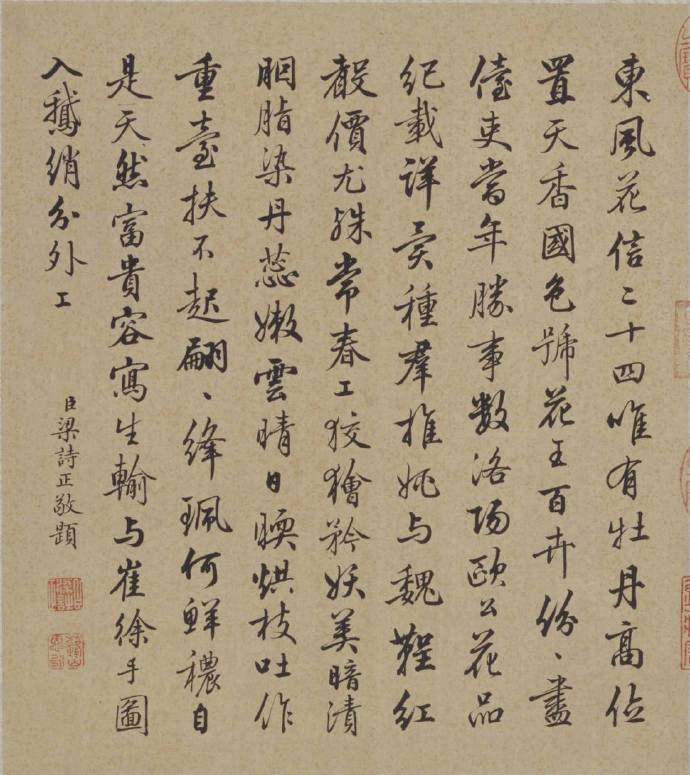 東風花信二十四唯有牡丹高位
置天香國色號花王百卉份〻盡
儓吏當年勝事數洛陽歐公花品
紀載詳異種羣推姚与魏鞓紅
殽價尤殊常春工狡獪矜妖美暗漬
胭脂染丹蕊嫩雲晴日暎烘枝吐作
重臺扶不起翩〻絳珮何鮮穠自
是天然富貴容寫生輸与崔徐手圖
入鵝綃分外工
臣梁詩正敬題